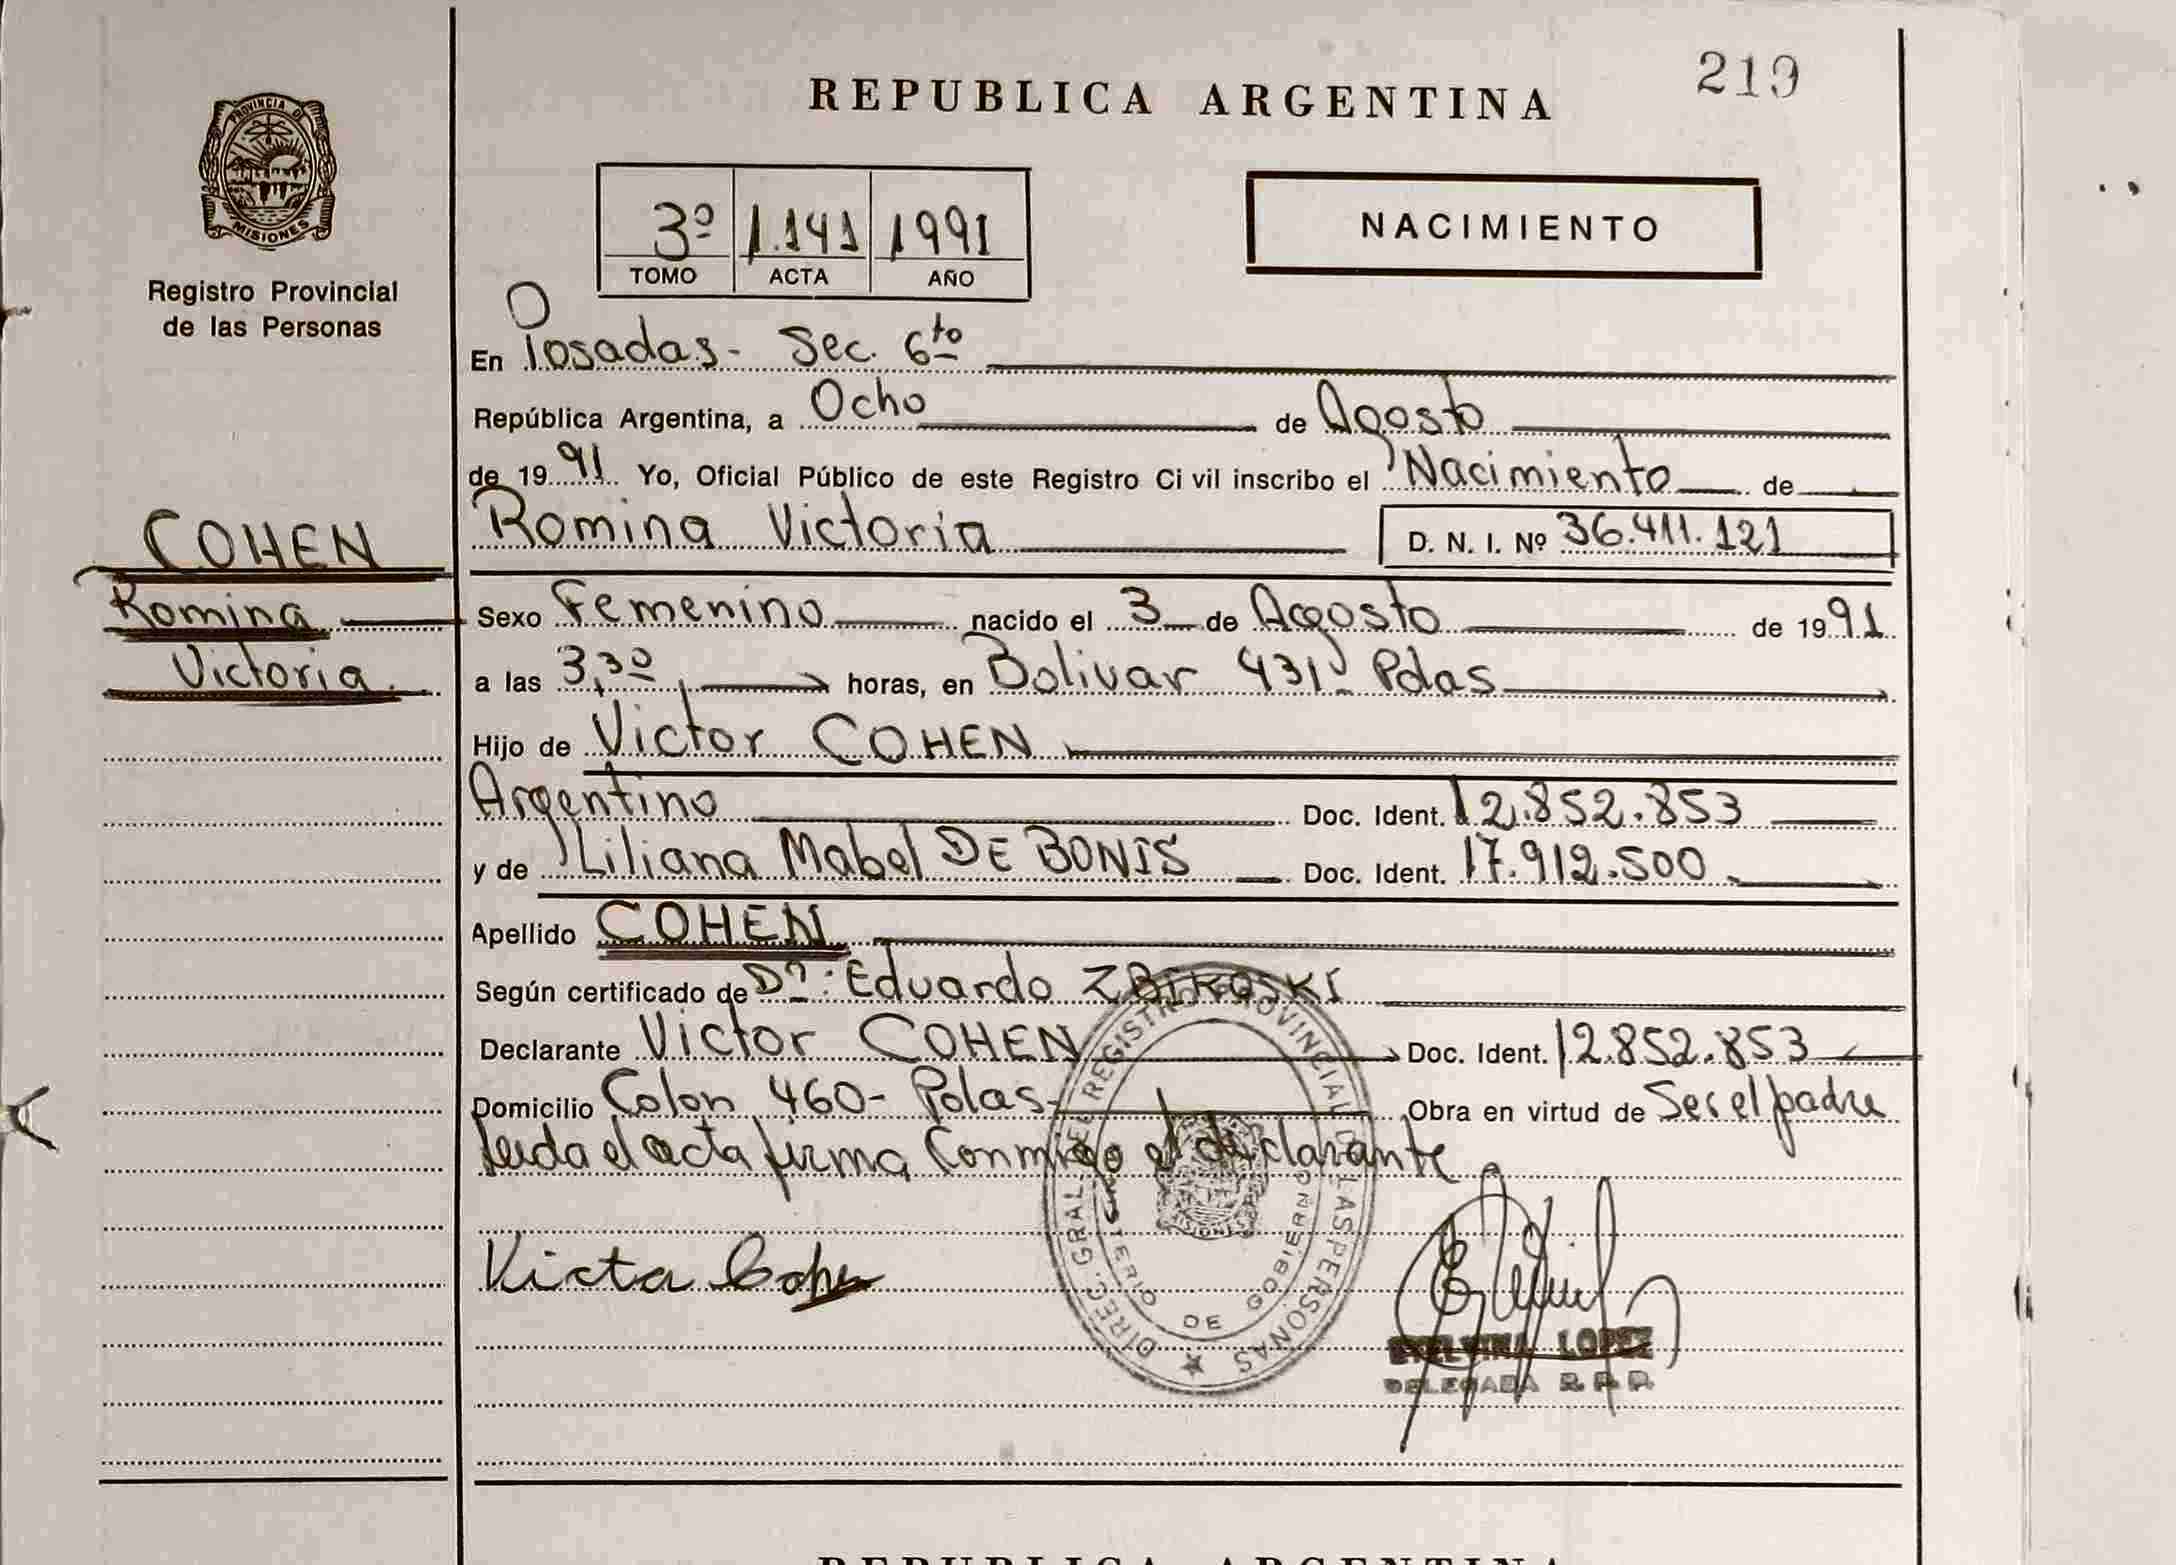 219
REPUBLICA ARGENTINA
PROVINCIA DE
MISIONES
Registro Provincial
de las Personas
3º 1.141 1991
TOMO ACTA AÑO
NACIMIENTO
En Posadas- Sec. 6to
República Argentina, a Ocho de Agosto
de 1991 Yo, Oficial Público de este Registro Ci vil inscribo el Nacimiento de
Romina Victoria D. N. I. Nº 36.411.121
COHEN
Romina
Victoria.
Sexo Femenino nacido el 3 de Agosto de 1991
a las 3,30 horas, en Bolivar 431- Pdas
Hijo de Victor COHEN
Argentino Doc. Ident. 12.852.853
y de Liliana Mabel DE BONIS Doc. Ident. 17.912.500
Apellido COHEN
Según certificado de Dr: Eduardo ZBIKOSKI
Declarante Victor COHEN Doc. Ident. 12.852.853
Domicilio Colon 460- Pdas- Obra en virtud de Ser el padre
leida el acta firma Conmigo el declarante
DIREC. GRAL. DEL REGISTRO PROVINCIAL DE LAS PERSONAS
MINISTERIO DE GOBIERNO
Victor Cohen
ETELVINA LOPEZ
DELEGADA R.P.P.
REPUBLICA ARGENTINA